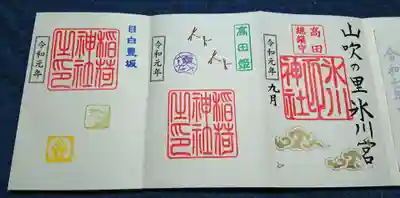 山吹の里氷川宮
高田
総鎮守
氷川
神社
令和元年
九月
高田姫
稲荷
神社
之印
令和元年
目白豊坂
稲荷
神社
之印
令和元年